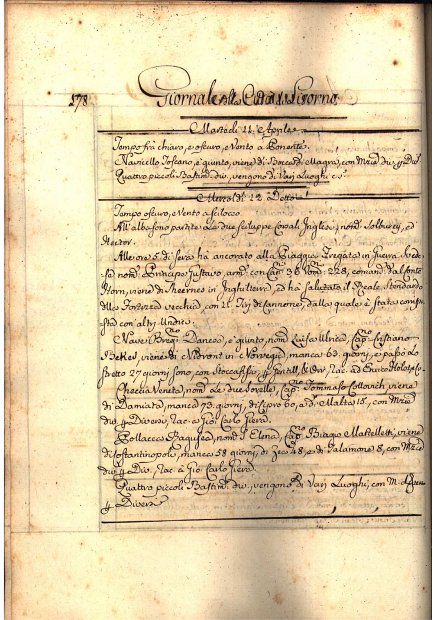 178
Giornale della Città di Livorno
Martedì 11 Aprile
Tempo frà chiaro, e oscuro, e Vento a Ponente.
Navicello Toscano, è giunto, viene di Bocca di Magra, con Mzie div. p. Div.
Quattro piccoli Bastim. div. vengono di Varj Luoghi
Mercoldì 12 Detto
Tempo oscuro, e Vento a scilocco.
All'alba sono partite Le due sciluppe Corali Inglesi, nom. Solbury, ed
Hector.
Alle ore 5 di sera hà ancorato alla Piaggia Fregata in Guerra Svede-
se nom. Principe Gustavo, arm. con Can. 38 Uom. 228, comand. dal Conte
Horn, viene di Sheernes in Inghilterra, ed hà salutata il Reale Stendardo
della Fortezza vecchia, con 21 Tiri di Cannone, dalla quale è stata corri-
sta con altri Undici.
Nave Danese, è giunto, nom. Luisa Ulrica, Cap. Cristiano
Bekes, viene di Nidront in Norvegia, manca 63 giorni, e passò Lo
stretto 27 giorni sono, con Stoccafisso, p. Gentili, & Orr, Rac. ad Enrico
Checcia Veneta, nom. Le due Sorelle, Cap. Tommaso Collovich, viene
di Damiata, manca 73 giorni, di Cipro 60, e di Malta 15, con Mzie
div. p. Diversi, Rac. a Gio. Carlo Sierà.
Pollacca Ragusea, nom. S. Elena, Cap. Biagio Martelletti, viene
di Costantinopoli, manca 58 giorni, di Zeo 48, e di Talamone 8, con Mzie
div. p. Div. Rac. à Gio. Carlo Sierà.
Quattro piccoli Bastim. div. vengono di Varj Luoghi, con M.
p. Diversi